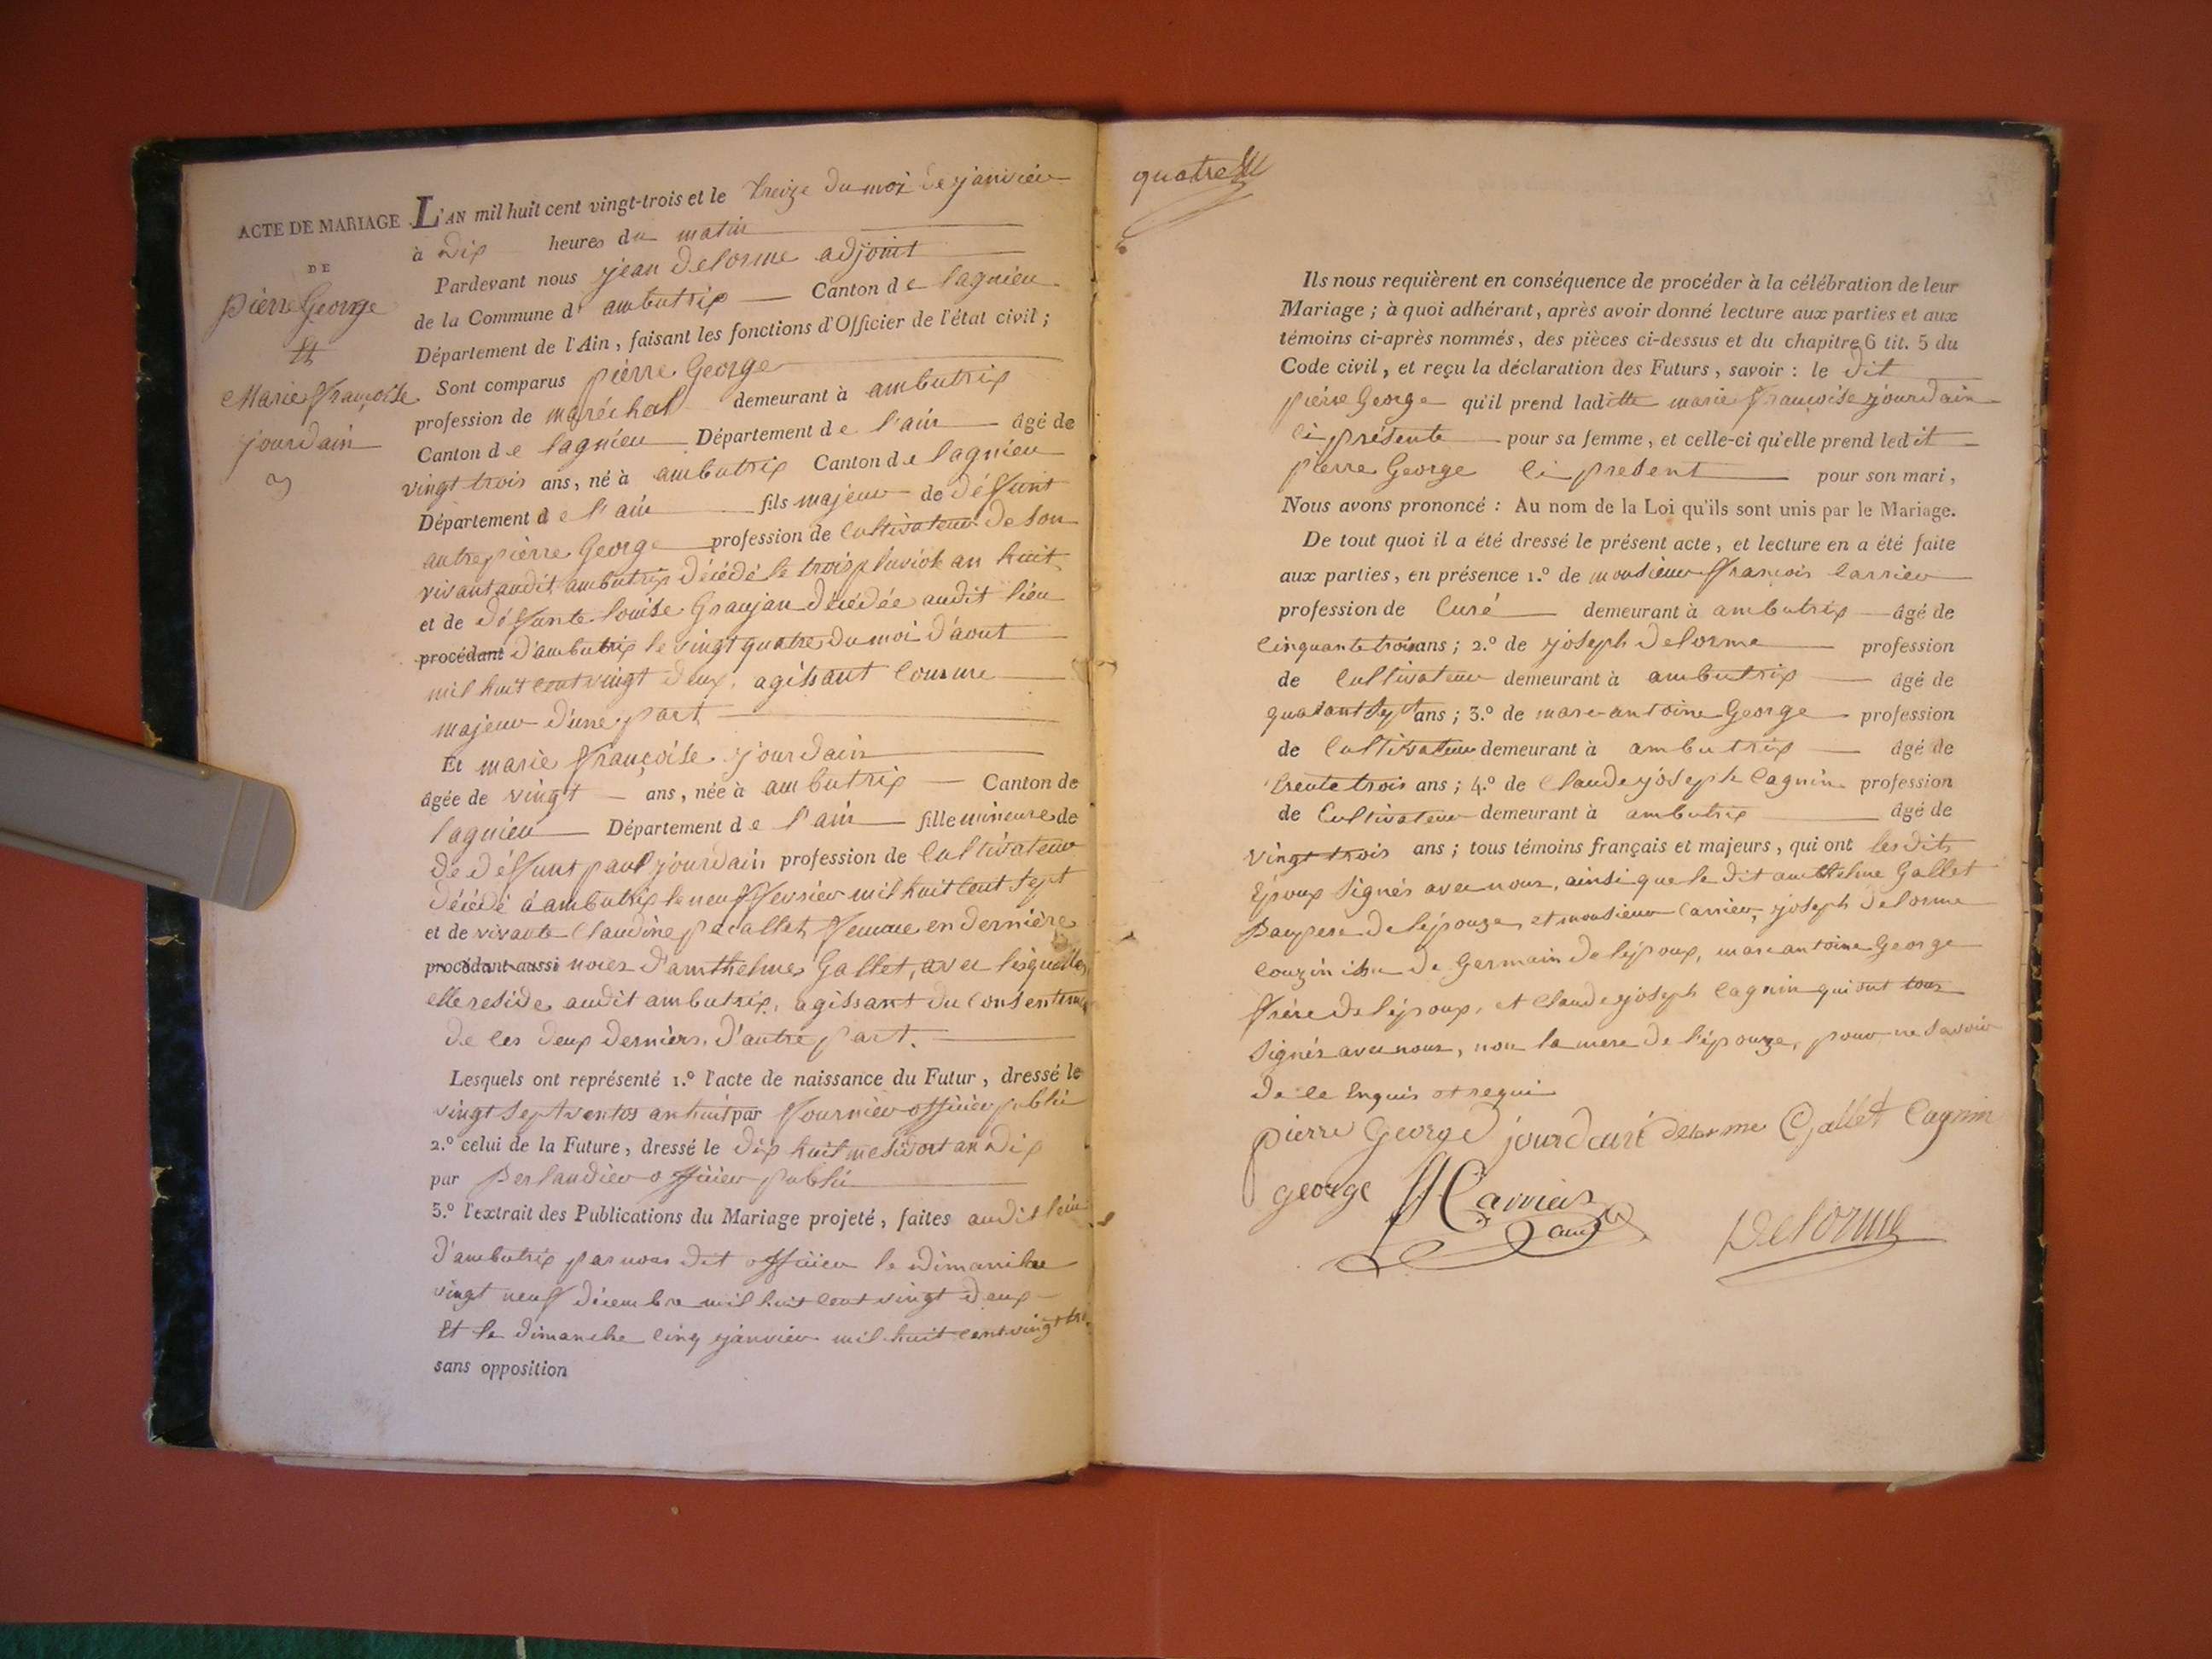 ACTE DE MARIAGE
DE
pierre George
Et
Marie françoise
jourdain
L'AN mil huit cent vingt-trois et le treize du moi de janvier
à dix heures du matin
Pardevant nous jean delorme adjoint
de la Commune d' ambutrix Canton de lagnieu
Département de l'Ain, faisant les fonctions d'Officier de l'état civil;
Sont comparus pierre George
profession de maréchal demeurant à ambutrix
Canton de lagnieu Département de l'ain âgé de
vingt trois ans, né à ambutrix Canton de lagnieu
Département de l'ain fils majeur de déffunt
autre pierre George profession de cultivateur de son
vivant audit ambutrix décédé le trois pluviose an huit
et de déffunte louise Granjan décédée audit lieu
procédant d'ambutrix le vingt quatre du moi d'aout
mil huit cent vingt deux, agissant comme
majeur d'une part
Et marie françoise jourdain
âgée de vingt ans, née à ambutrix Canton de
lagnieu Département de l'ain fille mineure de
de déffunt paul jourdain profession de cultivateur
décédé à ambutrix le neuf fevrier mil huit cent sept
et de vivante Claudine pacallet femme en dernière
procédant aussi noces d'amthelme Gallet, avec lesquelles
elle reside audit ambutrix, agissant du consenteme
de ces deux derniers, d'autre part.
Lesquels ont représenté 1.º l'acte de naissance du Futur, dressé le
vingt sept ventos an huit par fournier officier publi
2.º celui de la Future, dressé le dix huit messidort an dix
par officier publi
3.º l'extrait des Publications du Mariage projeté, faites audit lieu
d'ambutrix par nous dit officier le dimanche
vingt neuf décembre mil huit cent vingt deux
Et le dimanche cinq janvier mil huit cent vingt
sans opposition
quatre
Ils nous requièrent en conséquence de procéder à la célébration de leur
Mariage; à quoi adhérant, après avoir donné lecture aux parties et aux
témoins ci-après nommés, des pièces ci-dessus et du chapitre 6 tit. 5 du
Code civil, et reçu la déclaration des Futurs, savoir: le dit
pierre George qu'il prend laditte marie françoise jourdain
ci présente pour sa femme, et celle-ci qu'elle prend ledit
pierre George ci present pour son mari,
Nous avons prononcé: Au nom de la Loi qu'ils sont unis par le Mariage.
De tout quoi il a été dressé le présent acte, et lecture en a été faite
aux parties, en présence 1.º de monsieur françois Carrier
profession de Curé demeurant à ambutrix âgé de
cinquante trois ans; 2.º de joseph delorme profession
de cultivateur demeurant à ambutrix âgé de
quarant sept ans; 3.º de marc antoine George profession
de Cultivateur demeurant à ambutrix âgé de
trente trois ans; 4.º de Claude joseph Cagnin profession
de Cultivateur demeurant à ambutrix âgé de
vingt trois ans; tous témoins français et majeurs, qui ont les dits
Epoux signés avec nous, ainsi que le dit amthelme Gallet
Baupere de l'épouze et monsieur Carrier, joseph delorme
couzin issu de Germain de l'époux, marc antoine George
frère de l'époux, et Claude joseph Cagnin qui ont tous
signés avec nous, non la mere de l'épouze, pour ne savoir
de ce Enquis et requi
pierre George jourdain delorme Gallet Cagnin
george Carrier curé
Delorme